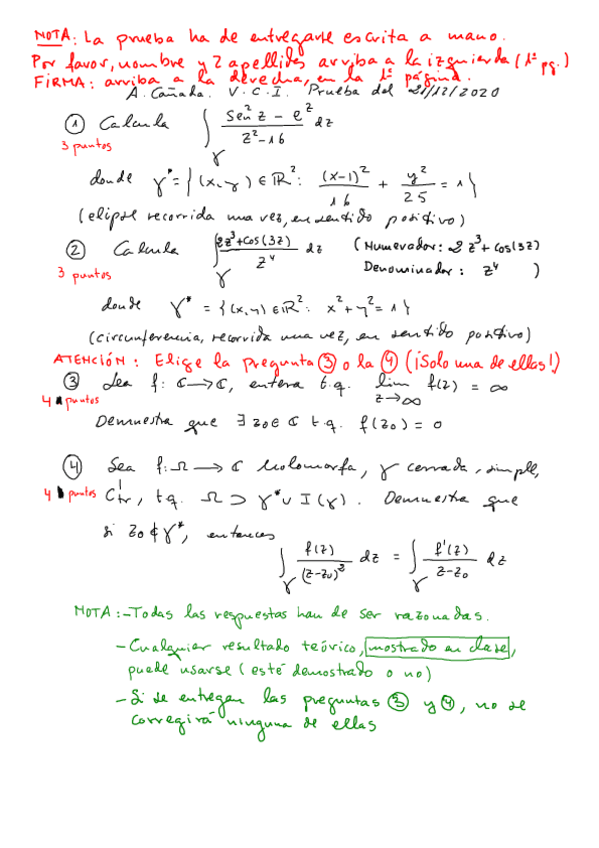 NOTA: La prueba ha de entregarse escrita a mano.
Por favor, nombre y 2 apellidos arriba a la izquierda (1ª pg.)
FIRMA: arriba a la derecha, en la 1ª página.
A. Cañada. V.C.I. Prueba del 21/12/2020
① Calcula ∫_γ (sen² z - e^z)/(z²-16) dz
3 puntos
donde γ* = {(x,y) ∈ ℝ²: (x-1)²/16 + y²/25 = 1}
(elipse recorrida una vez, en sentido positivo)
② Calcula ∫_γ (2z³+cos(3z))/z⁴ dz (Numerador: 2z³+cos(3z)
3 puntos Denominador: z⁴ )
donde γ* = {(x,y) ∈ ℝ²: x²+y²=1}
(circunferencia, recorrida una vez, en sentido positivo)
ATENCIÓN: Elige la pregunta ③ o la ④ (¡Solo una de ellas!)
③ Sea f: ℂ → ℂ, entera t.q. lim_{z→∞} f(z) = ∞
4 puntos
Demuestra que ∃ z₀ ∈ ℂ t.q. f(z₀) = 0
④ Sea f: Ω → ℂ holomorfa, γ cerrada, simple,
4 puntos C¹_tr, t.q. Ω ⊃ γ* ∪ I(γ). Demuestra que
si z₀ ∉ γ*, entonces
∫_γ f(z)/(z-z₀)² dz = ∫_γ f'(z)/(z-z₀) dz
NOTA:-Todas las respuestas han de ser razonadas.
- Cualquier resultado teórico, mostrado en clase,
puede usarse (esté demostrado o no)
- Si se entregan las preguntas ③ y ④, no se
corregirá ninguna de ellas